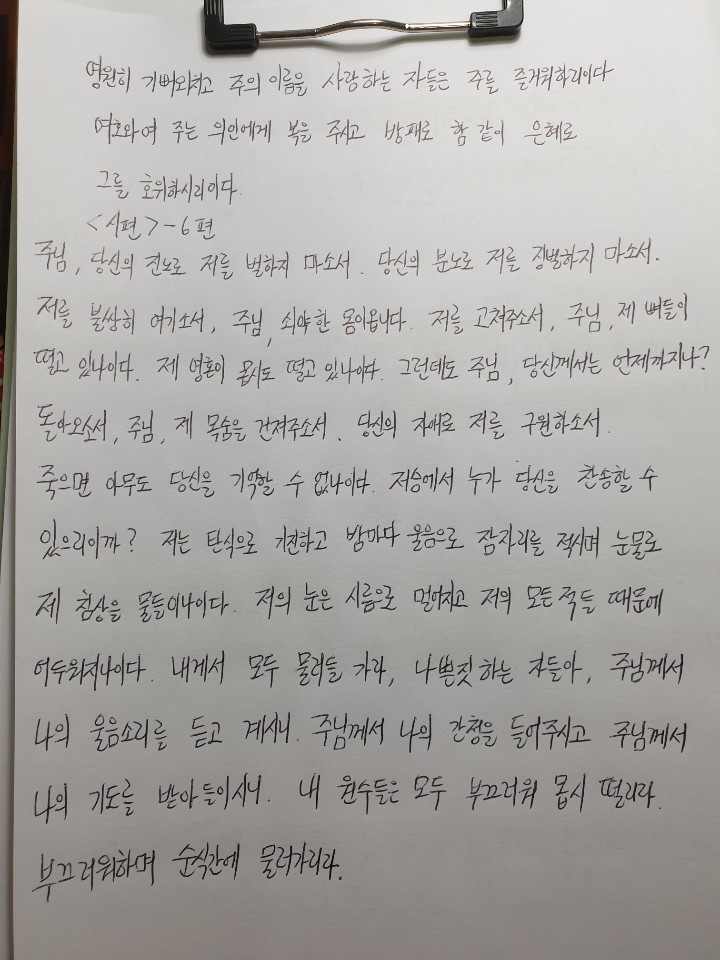 영원히 기뻐외치고 주의 이름을 사랑하는 자들은 주를 즐거워하리이다
여호와여 주는 의인에게 복을 주시고 방패로 함 같이 은혜로
그를 호위하시리이다.
<시편>-6편
주님, 당신의 진노로 저를 벌하지 마소서. 당신의 분노로 저를 징벌하지 마소서.
저를 불쌍히 여기소서, 주님, 쇠약한 몸이옵니다. 저를 고쳐주소서, 주님, 제 뼈들이
떨고 있나이다. 제 영혼이 몹시도 떨고 있나이다. 그런데도 주님, 당신께서는 언제까지나?
돌아오소서, 주님, 제 목숨을 건져주소서. 당신의 자애로 저를 구원하소서.
죽으면 아무도 당신을 기억할 수 없나이다. 저승에서 누가 당신을 찬송할 수
있으리이까? 저는 탄식으로 기진하고 밤마다 울음으로 잠자리를 적시며 눈물로
제 침상을 물들이나이다. 저의 눈은 시름으로 멀어지고 저의 모든 적들 때문에
어두워지나이다. 내게서 모두 물러들 가라, 나쁜짓 하는 자들아, 주님께서
나의 울음소리를 듣고 계시니. 주님께서 나의 간청을 들어주시고 주님께서
나의 기도를 받아 들이시니. 내 원수들은 모두 부끄러워 몹시 떨리라.
부끄러워하며 순식간에 물러가리라.